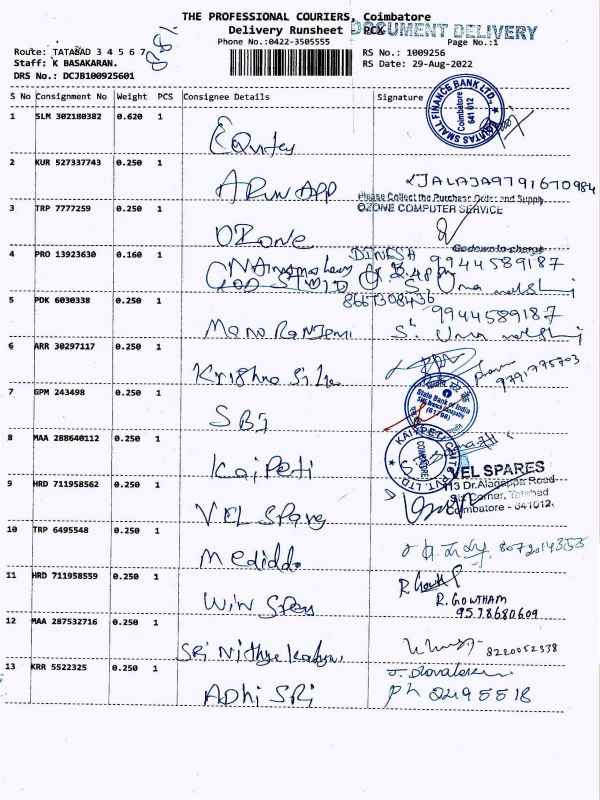 THE PROFESSIONAL COURIERS, Coimbatore
Delivery Runsheet - PCX
DOCUMENT DELIVERY
Phone No.:0422-3505555
Page No.:1
Route: TATABAD 3 4 5 6 7
RS No.: 1009256
Staff: K BASAKARAN.
RS Date: 29-Aug-2022
DRS No.: DCJB100925601
S No Consignment No Weight PCS Consignee Details Signature
EQUITAS SMALL FINANCE BANK LTD.,
Coimbatore
641 012
1 SLM 302180382 0.620 1
Equitas
2 KUR 527337743 0.250 1
ARUN APP
JALAJA 9791670984
Please Collect the Purchase Order and Supply
OZONE COMPUTER SERVICE
3 TRP 7777259 0.250 1
OZone
Godown Incharge
4 PRO 13923630 0.160 1
DINESH 9944589187
S. Uma
8667308436
5 PDK 6030338 0.250 1
Mano Ranjemi
9944589187
S. Uma
6 ARR 30297117 0.250 1
Krishna
9791775703
7 GPM 243498 0.250 1
SBI
State Bank of India
8 MAA 288640112 0.250 1
Kaipeti
KAIPPETI CHITS PVT. LTD.
COIMBATORE
9 HRD 711958562 0.250 1
VEL Spares
VEL SPARES
113 Dr.Alagappa Road
Six Corner, Tatabad
Coimbatore - 641012,
10 TRP 6495548 0.250 1
11 HRD 711958559 0.250 1
Win
R. GOWTHAM
9578680609
12 MAA 287532716 0.250 1
SRI Nithya
8220052338
13 KRR 5522325 0.250 1
ADhi SRi